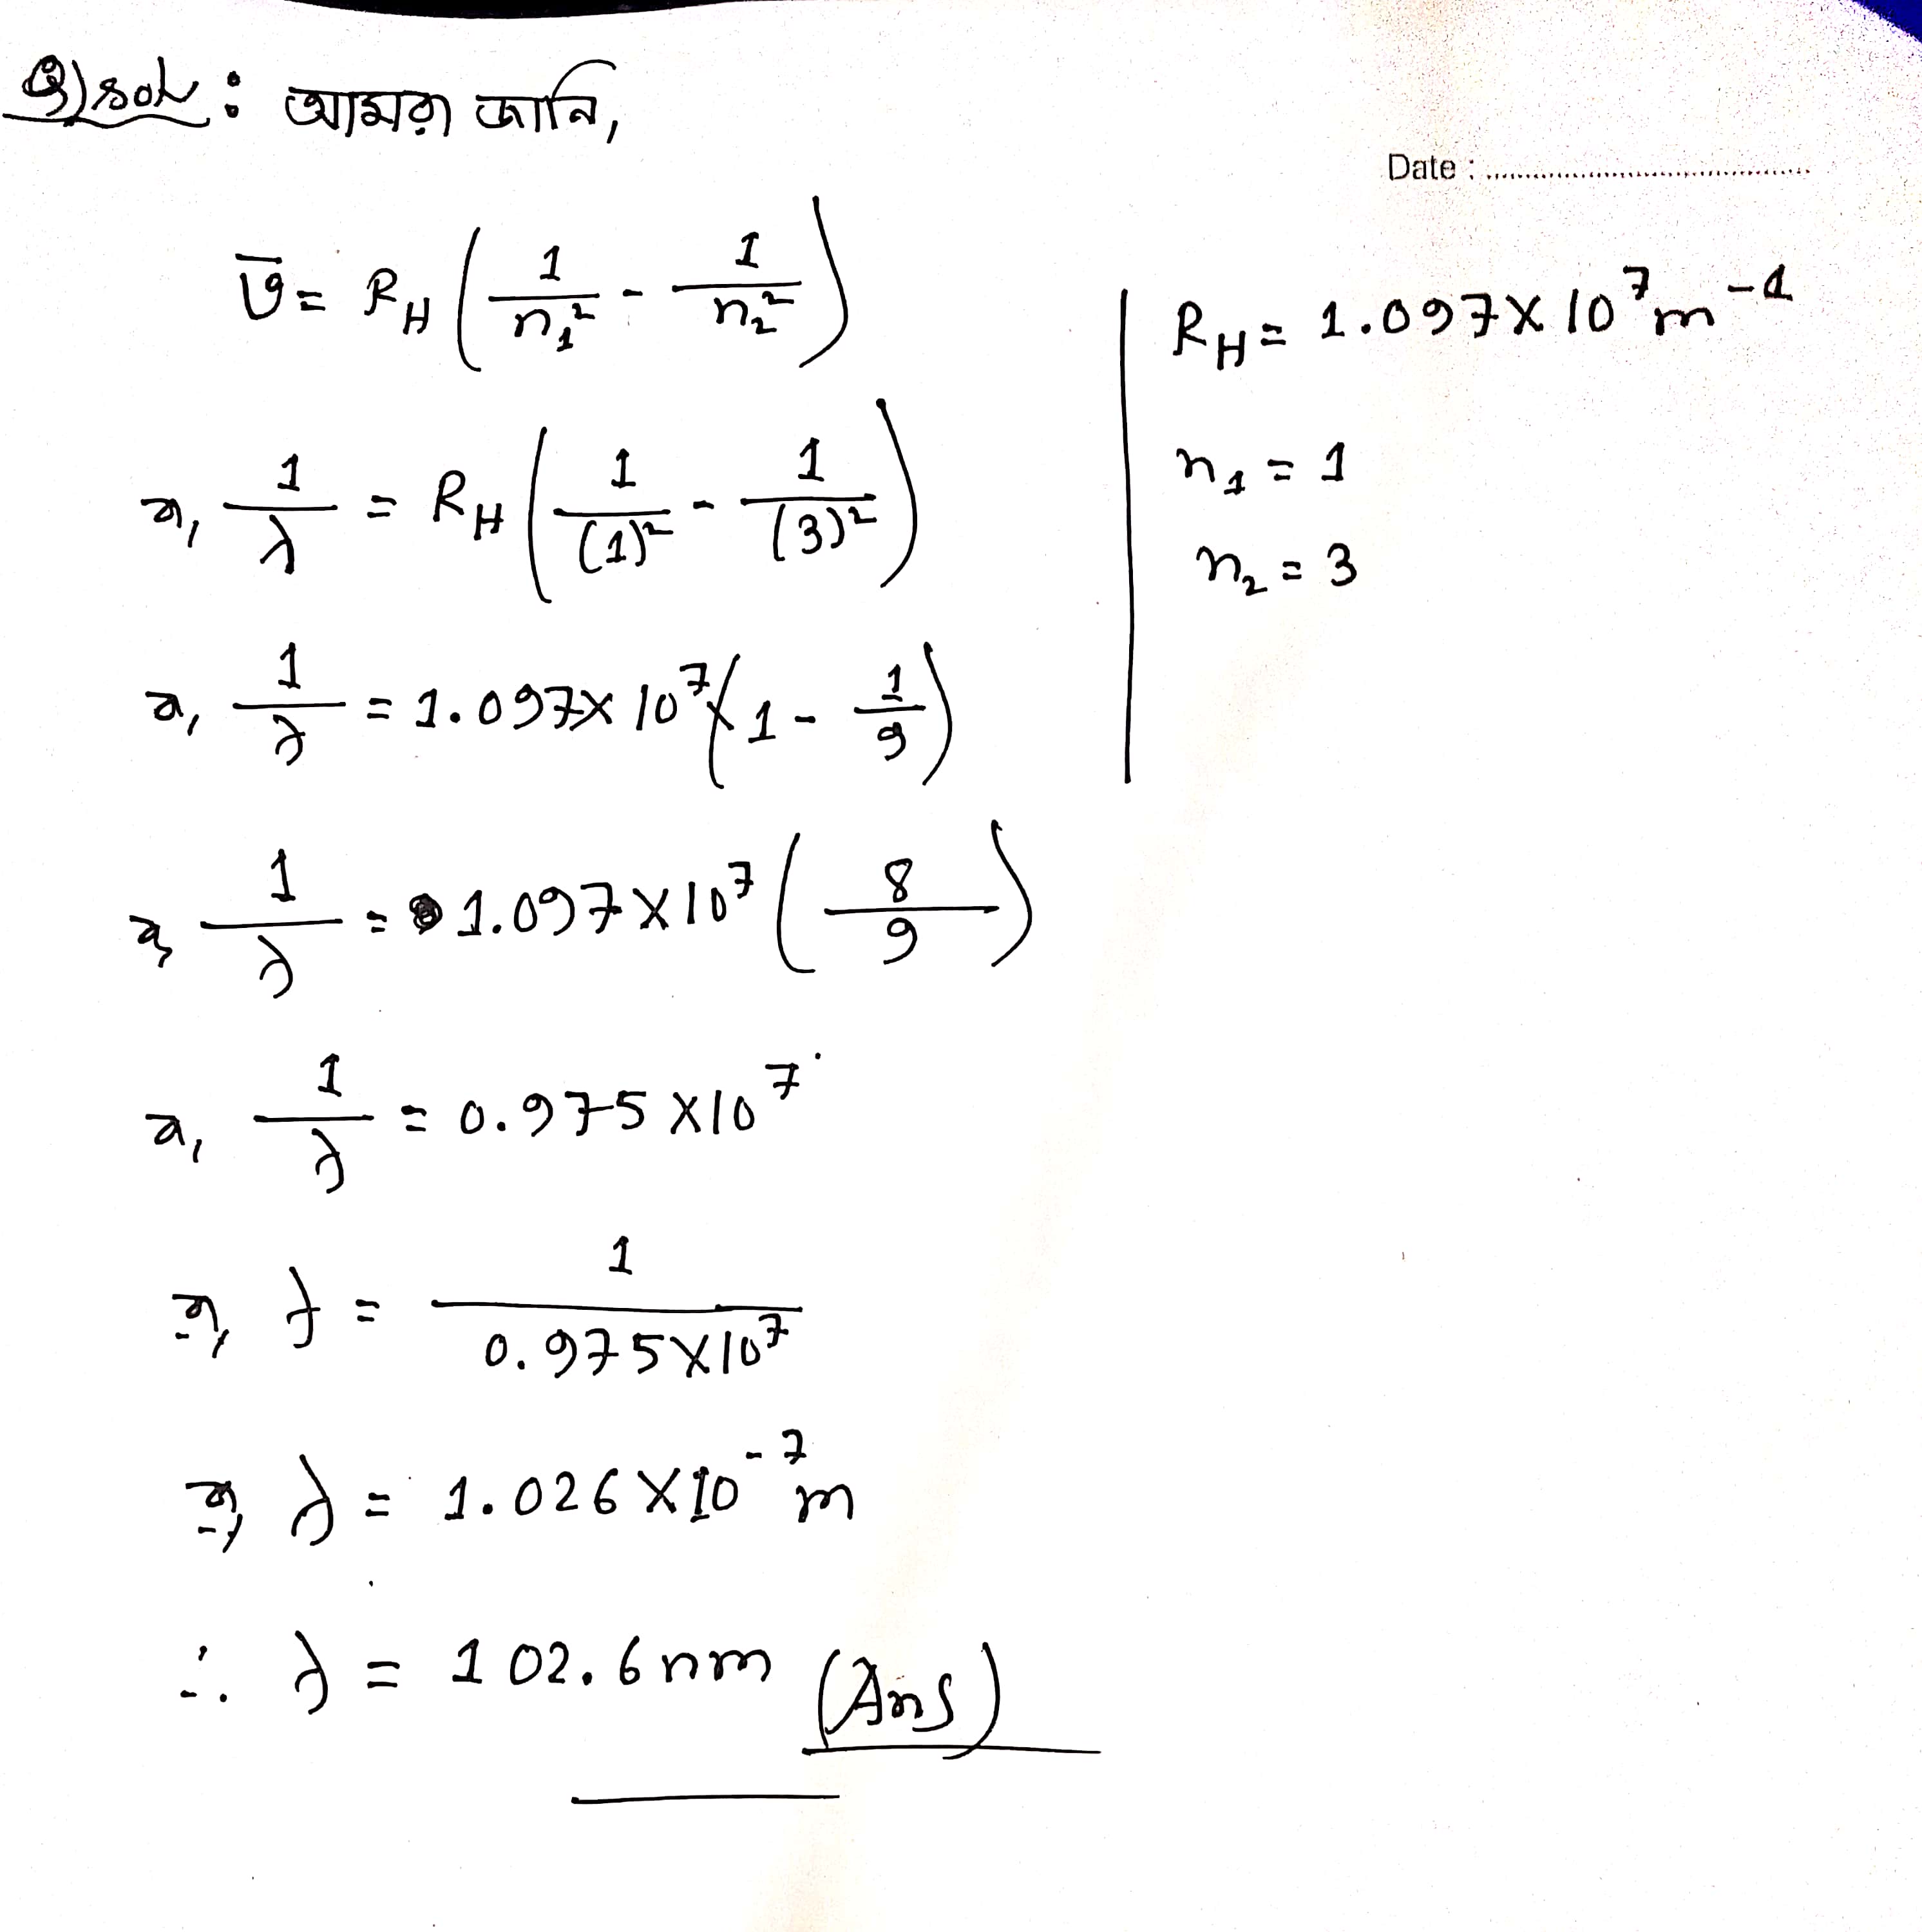 ৩) Solⁿ: আমরা জানি,
Date : ..........................
ῡ = R_H (1/n₁² - 1/n₂²)
R_H = 1.097 × 10⁷ m⁻¹
n₁ = 1
n₂ = 3
বা, 1/λ = R_H (1/(1)² - 1/(3)²)
বা, 1/λ = 1.097 × 10⁷ (1 - 1/9)
বা, 1/λ = 1.097 × 10⁷ (8/9)
বা, 1/λ = 0.975 × 10⁷
বা, λ = 1/(0.975 × 10⁷)
বা, λ = 1.026 × 10⁻⁷ m
∴ λ = 102.6 nm (Ans)